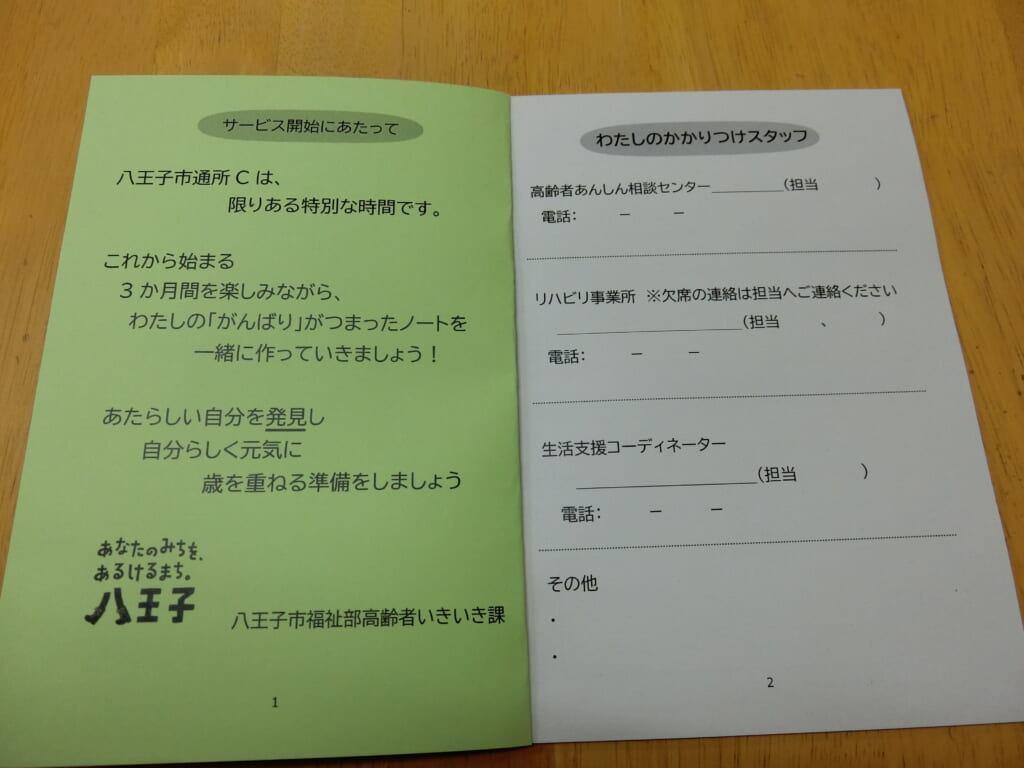 サービス開始にあたって
八王子市通所Cは、
限りある特別な時間です。
これから始まる
3か月間を楽しみながら、
わたしの「がんばり」がつまったノートを
一緒に作っていきましょう！
あたらしい自分を発見し
自分らしく元気に
歳を重ねる準備をしましょう
あなたのみちを、
あるけるまち。
八王子
八王子市福祉部高齢者いきいき課
1
わたしのかかりつけスタッフ
高齢者あんしん相談センター＿＿＿＿＿（担当　　　　）
電話：　　－　　－
リハビリ事業所　※欠席の連絡は担当へご連絡ください
＿＿＿＿＿＿＿＿＿＿＿＿（担当　　、　　　）
電話：　　－　　－
生活支援コーディネーター
＿＿＿＿＿＿＿＿＿＿＿＿（担当　　　　）
電話：　　－　　－
その他
・
・
2